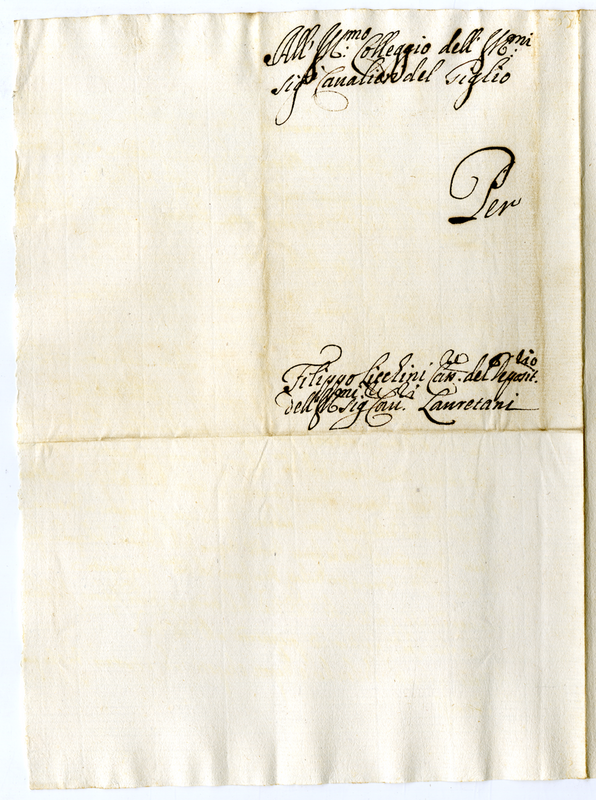 All' Ill:mo Colleggio dell' Ill:mi
Sig.ri Cavalieri del Giglio
Per
Filippo Cicchini del Deposit.rio
dell' Ill.mi Sig.ri Cau.ri Lauretani